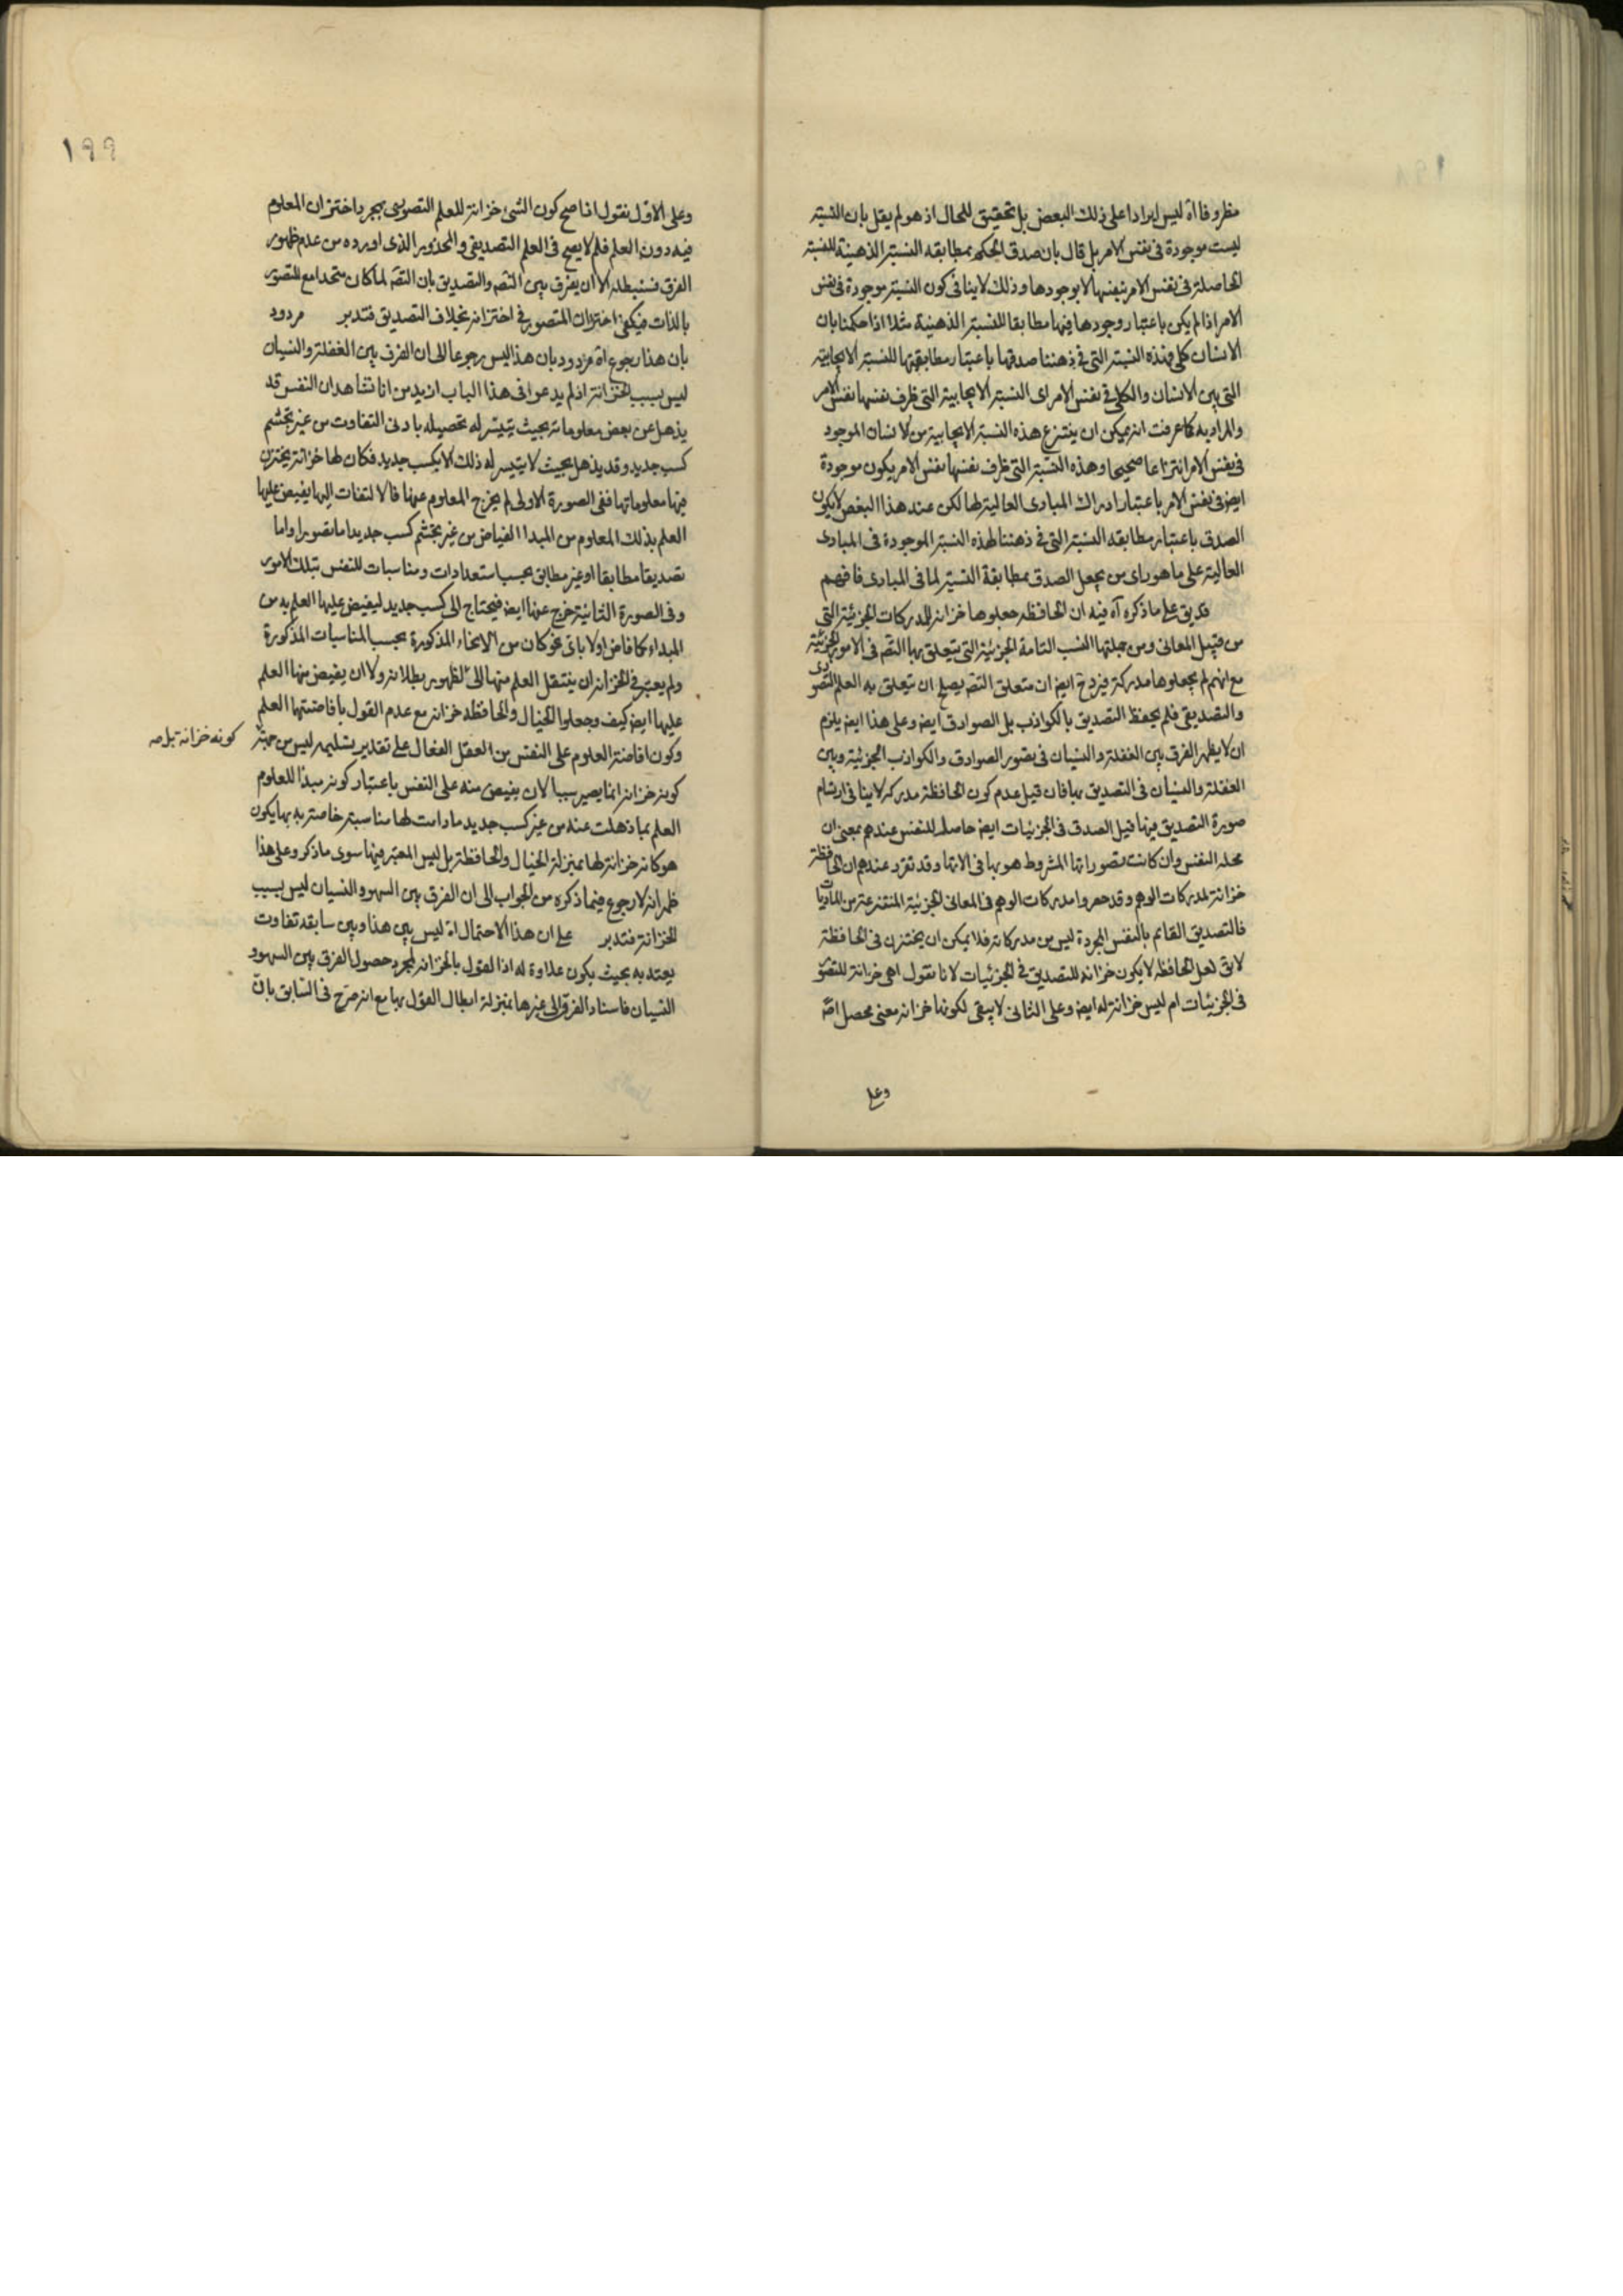 مظروفا اه ليس ايرادا على ذلك البعض بل تحقيق للحال اذ هو لم يقل بان النسبة
ليست موجودة فى نفس الامر بل قال بان صدق الحكم بمطابقه النسبة الذهنية للنسبة
الحاصلة فى نفس الامر بنفسها لا بوجودها وذلك لا ينافى كون النسبة موجودة فى نفس
الامر اذا لم يكن باعتبار وجودها فيها مطابقا للنسبة الذهنية مثلا اذا حكمنا بان
الانسان كلى فهذه النسبة التى فى ذهننا صدقها باعتبار مطابقتها للنسبة الايجابية
التى بين الانسان والكلى فى نفس الامر اى النسبة الايجابية التى ظرف نفسها نفس الامر
والمراد به كما عرفت انه يمكن ان ينتزع هذه النسبة الايجابية من الانسان الموجود
فى نفس الامر انتزاعا صحيحا وهذه النسبة التى ظرف نفسها نفس الامر يكون موجودة
ايض فى نفس الامر باعتبار ادراك المبادى العالية لها لكن عند هذا البعض لا يكون
الصدق باعتبار مطابقه النسبة التى فى ذهننا لهذه النسبة الموجودة فى المبادى
العالية على ما هو راى من يجعل الصدق بمطابقة النسبة لما فى المبادى فافهم
قد يق على ما ذكره اه فيه ان الحافظه جعلوها خزانه للمدركات الجزئية التى
من قبيل المعانى ومن جملتها النسب التامة الجزئية التى يتعلق بها التصم فى الامور الجزئية
مع انهم لم يجعلوها مدركة فيزدح ايض ان متعلق التصم يصلح ان يتعلق به العلم التصورى
والتصديقى فلم يحفظ التصديق بالكواذب بل الصوادق ايض وعلى هذا ايض يلزم
ان لا يظهر الفرق بين الغفلة والنسيان فى تصور الصوادق والكواذب الجزئية وبين
الغفلة والنسيان فى التصديق بها فان قيل عدم كون الحافظة مدركه لا ينافى ارتسام
صورة التصديق فيها قيل الصدق فى الجزئيات ايض حاصله للنفس عندهم بمعنى ان
محله النفس وان كانت تصوراتها المشروط هو بها فى الاتها وقد تقرر عندهم ان الحافظة
خزانة لمدركات الوهم وقد حصروا مدركات الوهم فى المعانى الجزئية المنتزعة من الماديات
فالتصديق القائم بالنفس المجردة ليس من مدركاته فلا يمكن ان يختزن فى الحافظة
لا يق لعل الحافظه لا يكون خزانه للتصديق فى الجزئيات لانا نقول اهى خزانة للتصور
فى الجزئيات ام ليس خزانة له ايض وعلى الثانى لا يبقى لكونها خزانه معنى محصل اصلا
وعلى
١٩٩
وعلى الاول نقول اذا صح كون الشئ خزانة للعلم التصورى بمجرد اختزان المعلوم
فيه دون العلم فلم لا يصح فى العلم التصديقى والمحذور الذى اورده من عدم ظهور
الفرق الا ان يفرق بين التصم والتصديق بان التصم لما كان متحدا مع المتصور
بالذات فيكفى اختزان المتصور فى اختزانه بخلاف التصديق فتدبر مردود
بان هذا رجوع اه مردود بان هذا ليس رجوعا الى ان الفرق بين الغفلة والنسيان
ليس بسبب الخزانة اذ لم يدعوا فى هذا الباب ازيد من انا نشاهد ان النفس قد
يذهل عن بعض معلوماته بحيث يتيسر له تحصيله بادنى التفاوت من غير تجشم
كسب جديد وقد يذهل بحيث لا يتيسر له ذلك الا بكسب جديد فكان لها خزانة يختزن
فيها معلوماتها ففى الصورة الاولى لم يخرج المعلوم عنها فالالتفات اليها يفيض عليها
العلم بذلك المعلوم من المبدا الفياض من غير تجشم كسب جديد اما تصورا واما
تصديقا مطابقا او غير مطابق بحسب استعدادات ومناسبات للنفس بتلك الامور
وفى الصورة الثانية خرج عنها ايض فيحتاج الى كسب جديد ليفيض عليها العلم به من
المبداء كما فاض اولا باى نحو كان من الانحاء المذكورة بحسب المناسبات المذكورة
ولم يعتبر فى الخزانه ان ينتقل العلم منها الى لظهور بطلانه ولا ان يفيض منها العلم
عليها ايض كيف وجعلوا الخيال والحافظه خزانه مع عدم القول بافاضتهما العلم
وكون افاضة العلوم على النفس من العقل الفعال على تقدير تسليمه ليس من حيث
كونه خزانة بل من
كونه خزانه انما يصير سببا لان يفيض منه على النفس باعتبار كونه مبدأ للعلوم
العلم بما ذهلت عنه من غير كسب جديد ما دامت لها مناسبة خاصة به بها يكون
هو كانه خزانة لها بمنزلة الخيال والحافظة بل ليس المعتبر فيها سوى ما ذكر وعلى هذا
ظهر انه لا رجوع فيما ذكره من الجواب الى ان الفرق بين السهو والنسيان ليس بسبب
الخزانة فتدبر على ان هذا الاحتمال اه ليس بين هذا وبين سابقه تفاوت
يعتد به بحيث يكون علاوة له اذا لقول بالخزانه لمجرد حصول الفرق بين السهو و
النسيان فاسناد الفرق الى غيرها بمنزلة ابطال القول بها مع انه صرح فى السابق بان